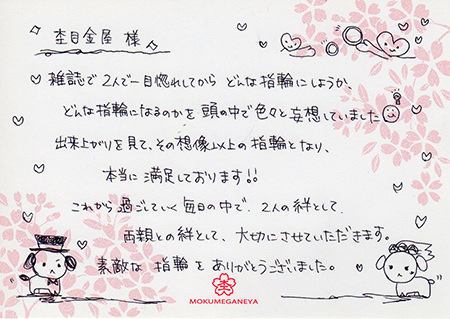 杢目金屋 様
雑誌で2人で一目惚れしてから どんな指輪にしようか、
どんな指輪になるのかを 頭の中で色々と妄想していました
出来上がりを見て、その想像以上の指輪となり、
本当に満足しております!!
これから過ごしていく毎日の中で、2人の絆として、
両親との絆として、大切にさせていただきます。
素敵な 指輪を ありがとうございました。
MOKUMEGANEYA